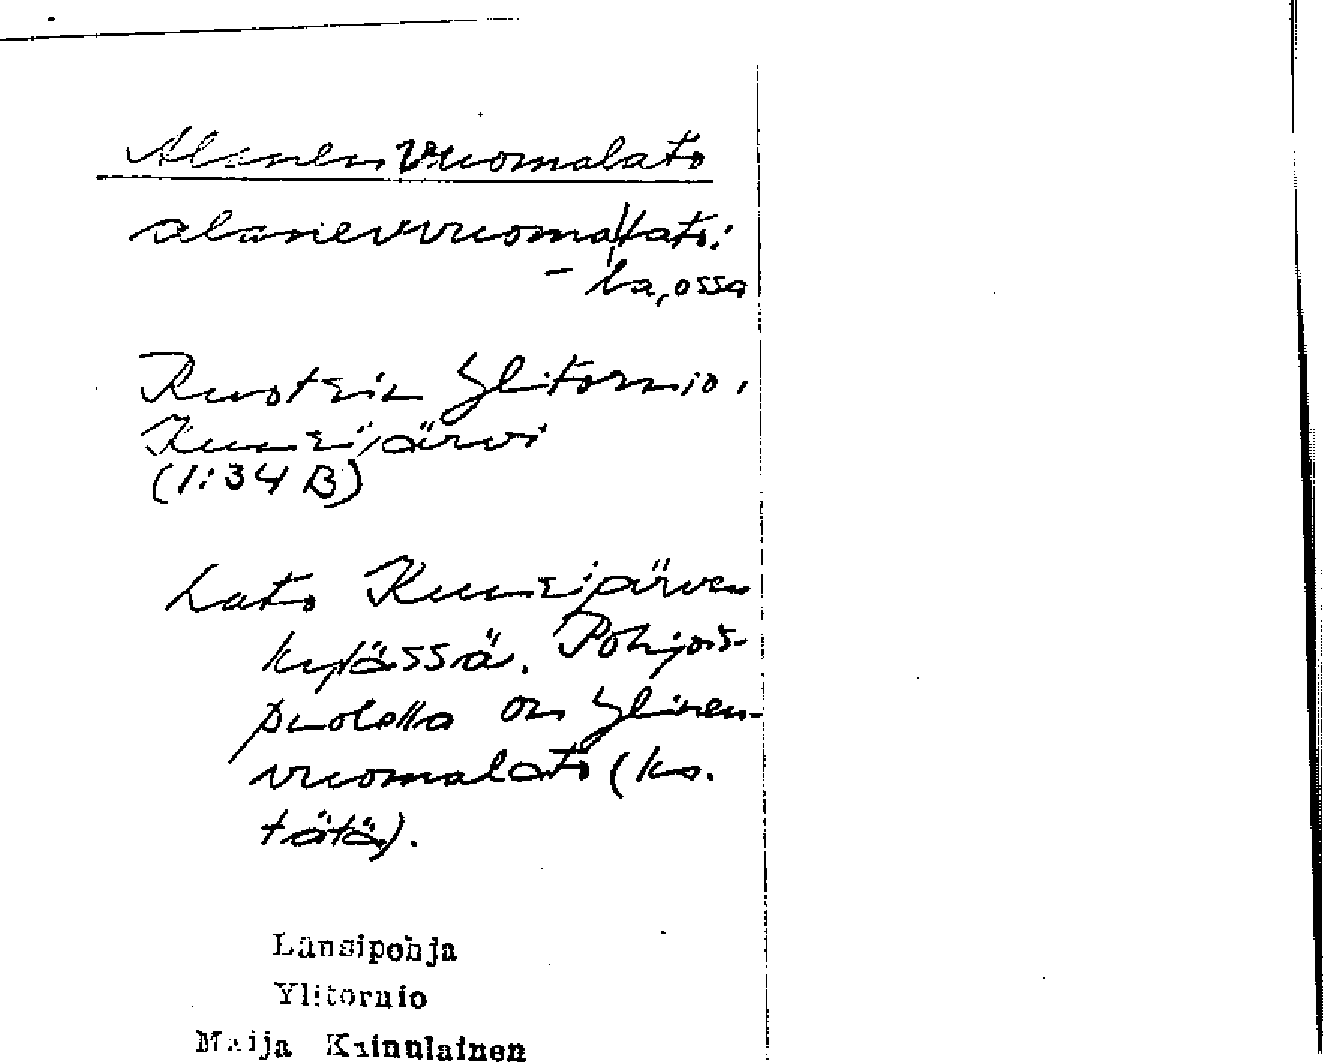 Alanen Vuomalato
alanevvuoma|lato:
- la, ossa
Ruotsin Ylitornio,
Kuusijärvi
(1:34 B)
Lato Kuusijärven
kylässä. Pohjois-
puolella on Ylinen-
vuomalato (ks.
tätä).
Länsipohja
Ylitornio
Maija Kainulainen